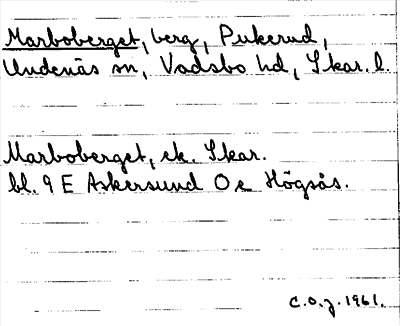 Marboberget, berg, Pukerud,
Undenäs sn, Vadsbo hd, Skar. l.
Marboberget, ek. Skar.
bl. 9 E Askersund 0 e Högsås.
C.O.J. 1961.